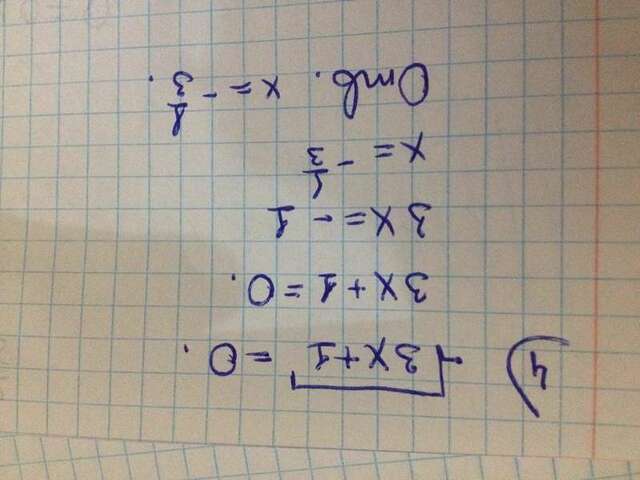 4) √3x+1 = 0.
3x+1=0.
3x=-1
x=-1/3
Отв. x=-1/3.